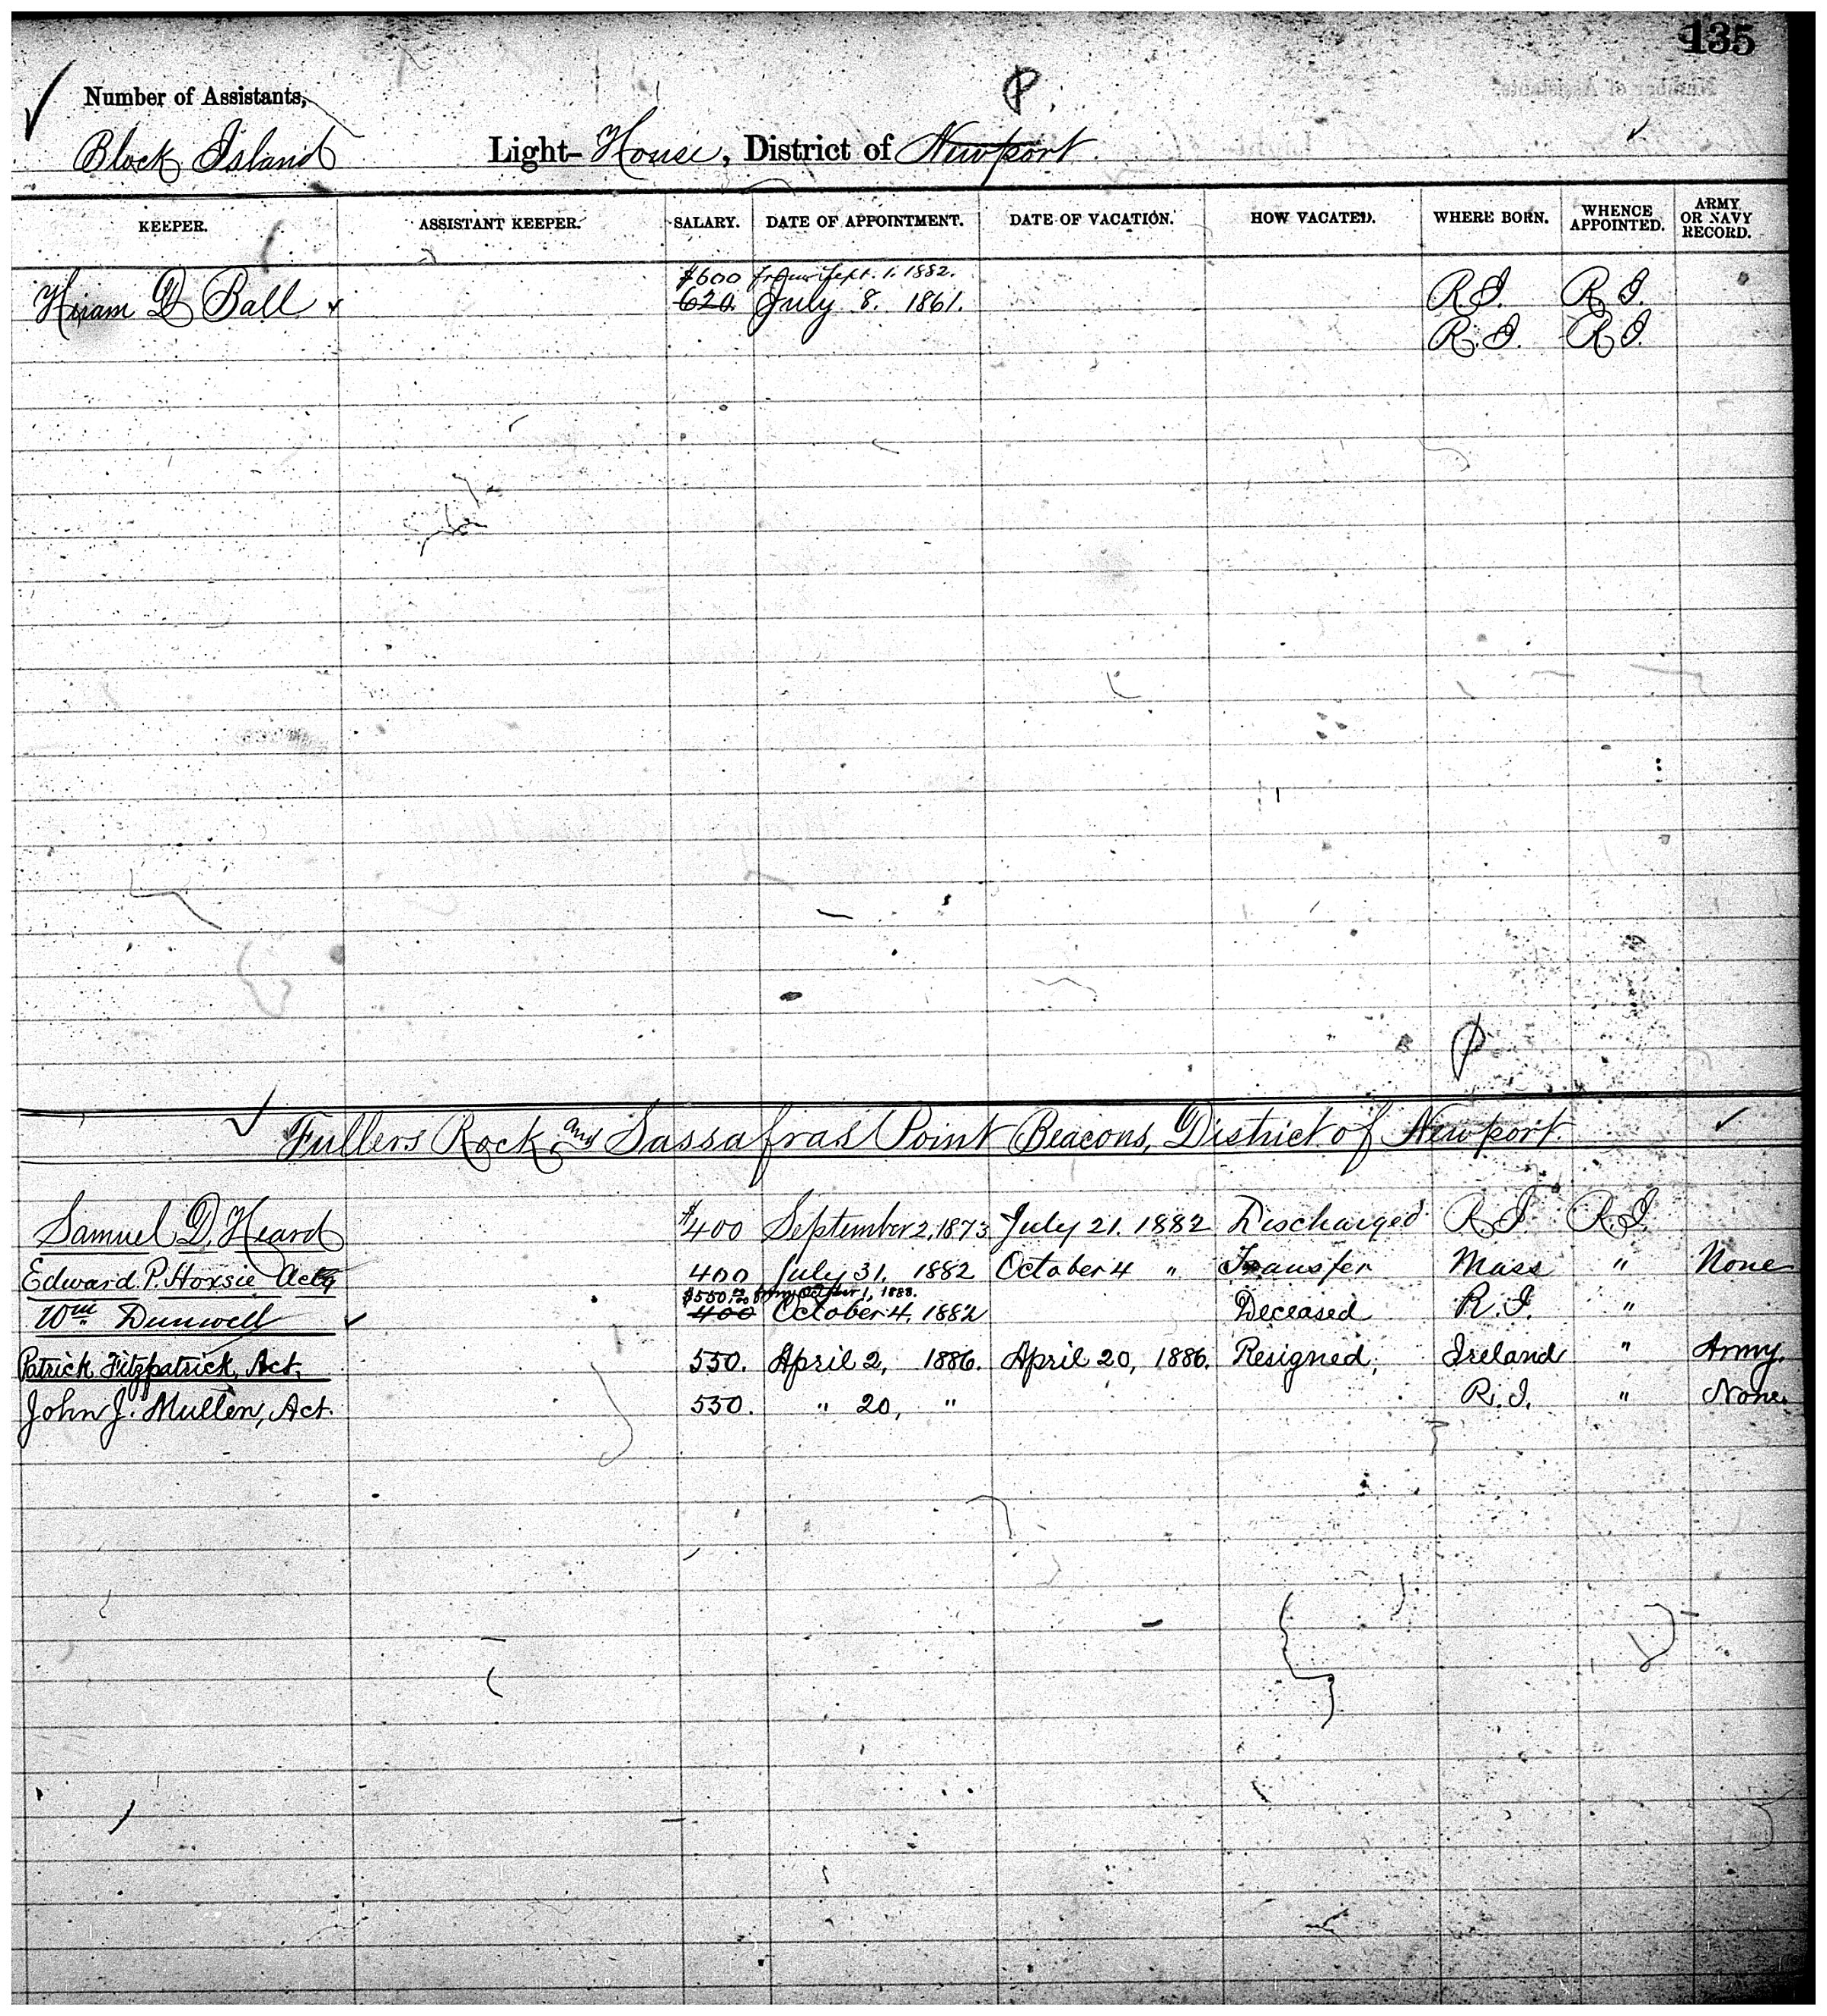 135
Number of Assistants,
Block Island Light-House, District of Newport.
KEEPER. ASSISTANT KEEPER. SALARY. DATE OF APPOINTMENT. DATE OF VACATION. HOW VACATED. WHERE BORN. WHENCE APPOINTED. ARMY OR NAVY RECORD.
$600 from Sept. 1. 1882.
Hiram D Ball 620. July 8. 1861. R.I. R.I.
R.I. R.I.
Fullers Rock and Sassafras Point Beacons, District of Newport.
Samuel D. Heard $400 September 2, 1873 July 21. 1882 Discharged R.I. R.I.
Edward P. Hoxsie Actg 400 July 31. 1882 October 4 " Transfer Mass " None
$550 from October 1, 1883.
Wm Dunwell 400 October 4, 1882 Deceased R.I. "
Patrick Fitzpatrick, Act. 550. April 2, 1886. April 20, 1886. Resigned, Ireland " Army.
John J. Mullen, Act. 550. " 20, " R.I. " None.